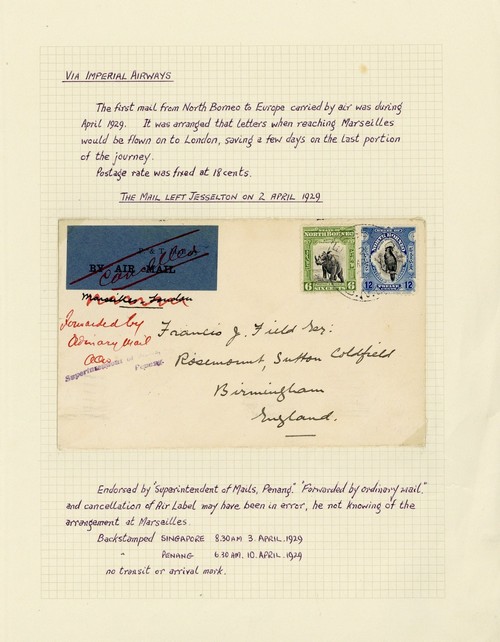 VIA IMPERIAL AIRWAYS
The first mail from North Borneo to Europe carried by air was during
April 1929. It was arranged that letters when reaching Marseilles
would be flown on to London, saving a few days on the last portion
of the journey.
Postage rate was fixed at 18 cents.
THE MAIL LEFT JESSELTON ON 2 APRIL 1929
BY AIR MAIL
Cancelled
Marseilles London
NORTH BORNEO
6 SIX CENTS 6
NORTH BORNEO
12 POSTAGE 12
Forwarded by
Ordinary Mail
Superintendent of
Penang.
Francis J. Field Esq:
Rosemount, Sutton Coldfield
Birmingham
England.
Endorsed by "Superintendent of Mails, Penang," "Forwarded by ordinary mail,"
and cancellation of Air Label may have been in error, he not knowing of the
arrangement at Marseilles.
Backstamped SINGAPORE 8.30AM 3. APRIL. 1929
" PENANG 6.30AM. 10. APRIL. 1929
no transit or arrival mark.